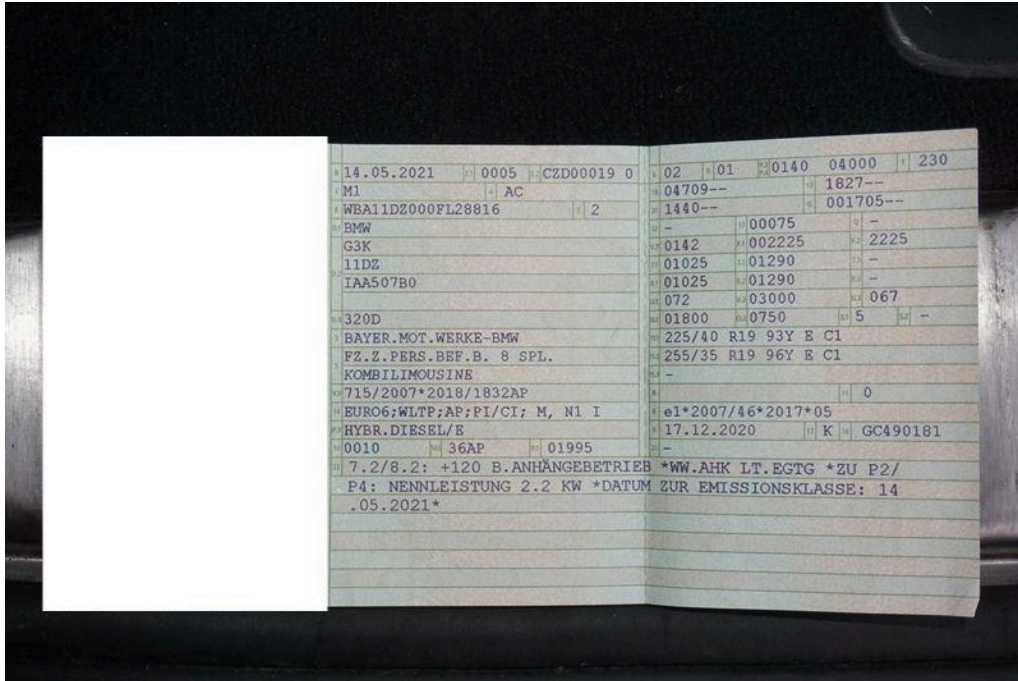 14.05.2021 0005 CZD00019 0
M1 AC
WBA11DZ000FL28816 2
BMW
G3K
11DZ
IAA507B0
320D
BAYER.MOT.WERKE-BMW
FZ.Z.PERS.BEF.B. 8 SPL.
KOMBILIMOUSINE
715/2007*2018/1832AP
EURO6;WLTP;AP;PI/CI; M, N1 I
HYBR.DIESEL/E
0010 36AP 01995
02 01 0140 04000 230
04709-- 1827--
1440-- 001705--
- 00075 -
0142 002225 2225
01025 01290 -
01025 01290 -
072 03000 067
01800 0750 5 -
225/40 R19 93Y E C1
255/35 R19 96Y E C1
-
0
e1*2007/46*2017*05
17.12.2020 K GC490181
-
7.2/8.2: +120 B.ANHÄNGEBETRIEB *WW.AHK LT.EGTG *ZU P2/
P4: NENNLEISTUNG 2.2 KW *DATUM ZUR EMISSIONSKLASSE: 14
.05.2021*